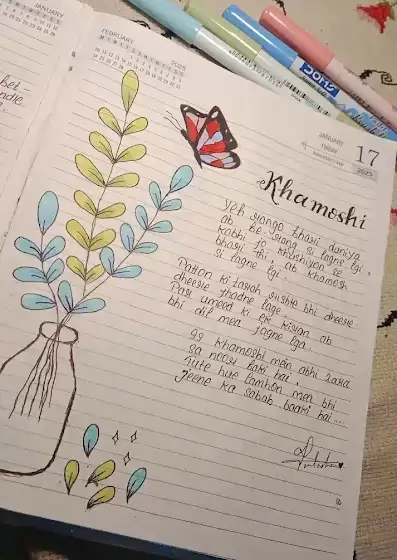 JANUARY
FEBRUARY
2025
JANUARY
FRIDAY
17
2025
Khamoshi
Yeh rango bhari duniya
ab be rang si lagne lgi,
Kabhi jo khushiyon se
bhari thi, ab khamosh
si lagne lgi.
Patton ki tarah rishte bhi dheere
dheere jhadne lage,
Par umeed ki ek kiran ab
bhi dil mea jagne lga.
iss khamoshi mein abhi zara
sa noor baki hai,
Tute hute lamhon mea bhi
Jeene ka sabab baaki hai...